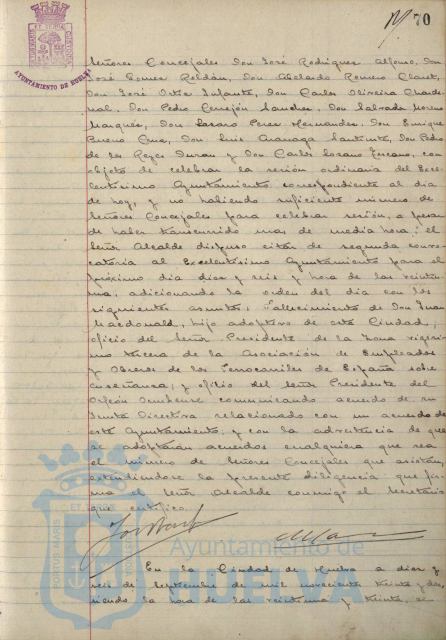 Nº 70
AYUNTAMIENTO DE HUELVA
Señores Concejales Don José Rodríguez Alfonso, Don
José Gomez Roldán, Don Abelardo Romero Claret,
Don José Ortiz Infante, Don Carlos Oliveira Chardenal, Don Pedro Cerrejón Sanchez, Don Salvador Moreno
Marquez, Don Lazaro Perez Hernandez, Don Enrique
Bueno Cruz, Don Luis Aranaga Santiute, Don Pedro
de los Reyes Duran y Don Carlos Lozano, con
objeto de celebrar la sesión ordinaria del Exce-
lentísimo Ayuntamiento correspondiente al dia
de hoy, y no habiendo suficiente número de
Señores Concejales para celebrar sesión, a pesar
de haber transcurrido mas de media hora, el
Señor Alcalde dispuso citar de segunda convo-
catoria al Excelentísimo Ayuntamiento para el
próximo dia diez y seis y hora de las veintiu-
na, adicionando la orden del dia con los
siguientes asuntos: Fallecimiento de Don Juan
Macdonald, hijo adoptivo de esta Ciudad;
oficio del Señor Presidente de la Zona vigesi-
mo tercera de la Asociación de Empleados
y Obreros de los Ferrocarriles de España sobre
enseñanza; y oficio del Señor Presidente del
Orfeón Onubense comunicando acuerdo de su
Junta Directiva relacionado con un acuerdo de
este Ayuntamiento, y con la advertencia de que
se adoptarán acuerdos cualquiera que sea
el número de Señores Concejales que asistan,
extendiendose la presente diligencia que fir-
ma el Señor Alcalde conmigo el Secretario
que certifico.
PORTUS MARIS
Ayuntamiento de
HUELVA
En la Ciudad de Huelva a diez y
seis de Septiembre de mil novecientos treinta y dos,
siendo la hora de las veintiuna y treinta, el